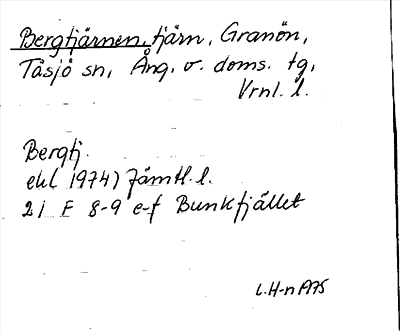 Bergtjärnen, tjärn, Granön,
Tåsjö sn, Ång. v. doms. tg,
Vrnl. l.
Bergtj.
ekl 1974) Jämtl. l.
21 F 8-9 e-f Bunkfjället
L.H-n 1975